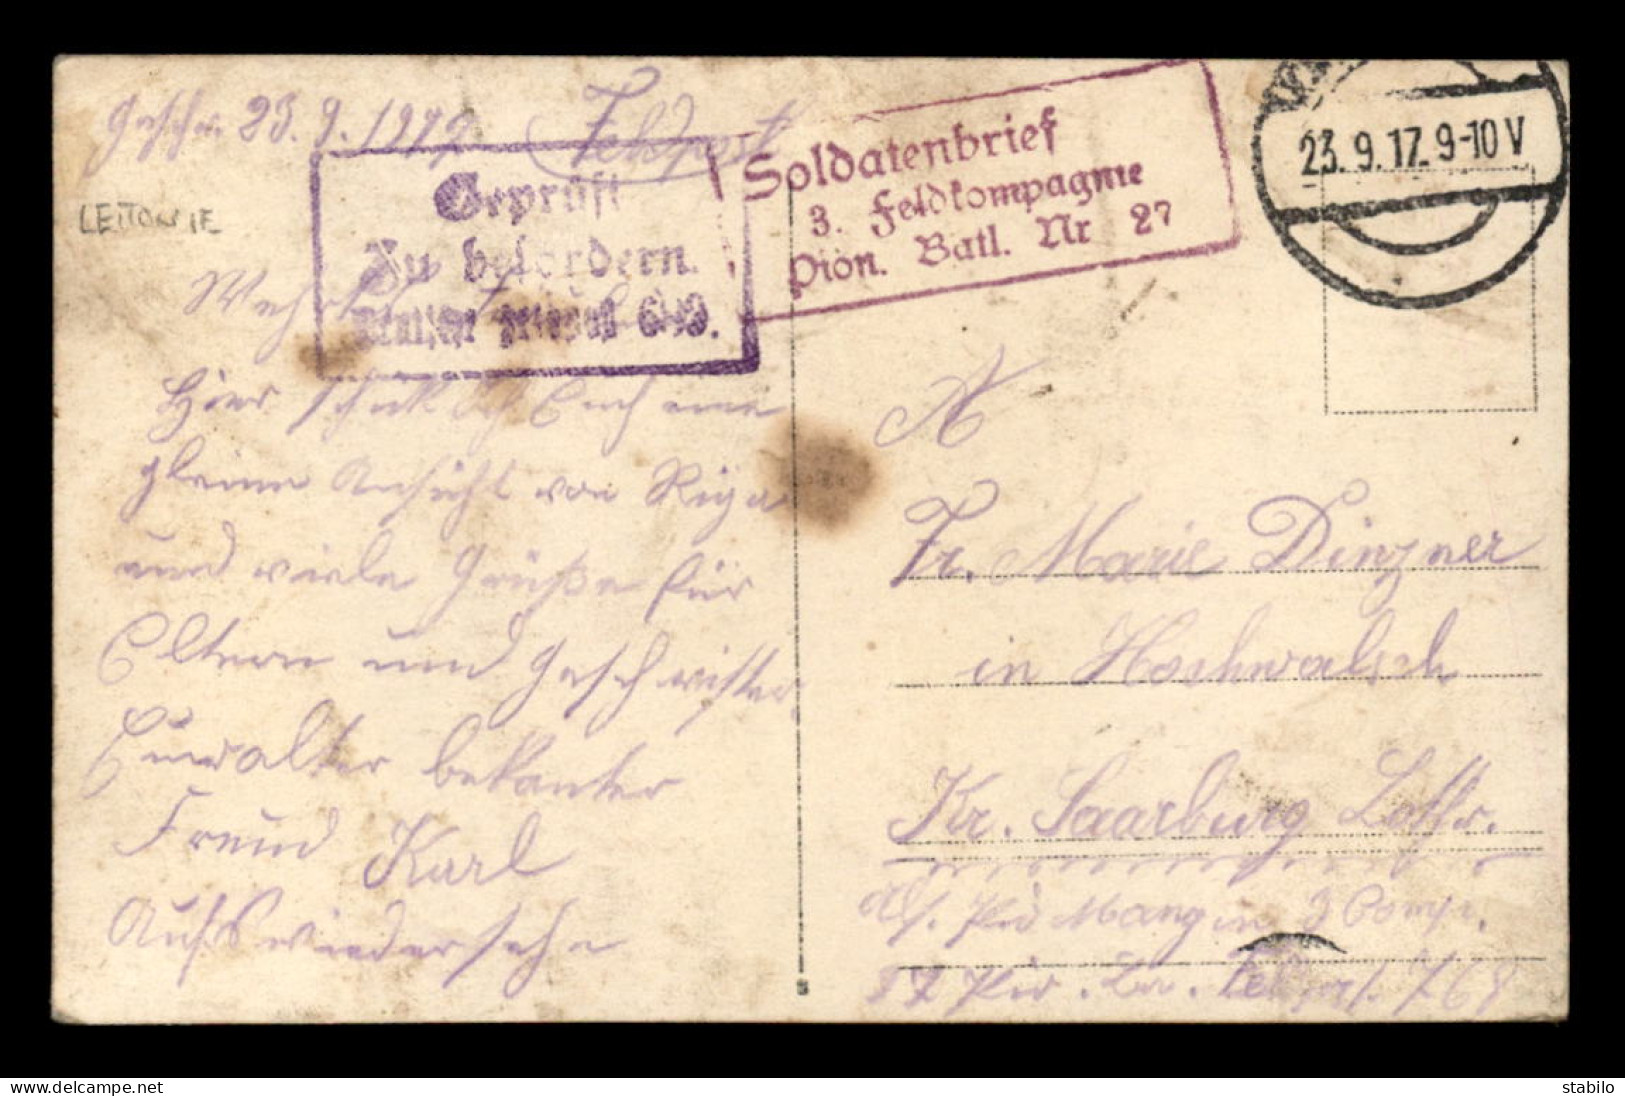 Geschr. 23.9.1917 Feldpost
LETTONIE
Geprüft
Zu befördern.
649.
Soldatenbrief
3. Feldkompagnie
Pion. Batl. Nr 27
23.9.17. 9-10 V
Hier schick ich Euch eine
kleine Ansicht von Riga
und viele Grüße für
Eltern und Geschwister
Euer alter bekanter
Freund Karl
Aufs wiedersehn
A
Fr. Marie Dinzner
in Hochwalsch
Kr. Saarburg Lothr.
Abs. Pio 3 Comp.
27 Pio. Feldpost. 768
Delcampe.net
stabilo